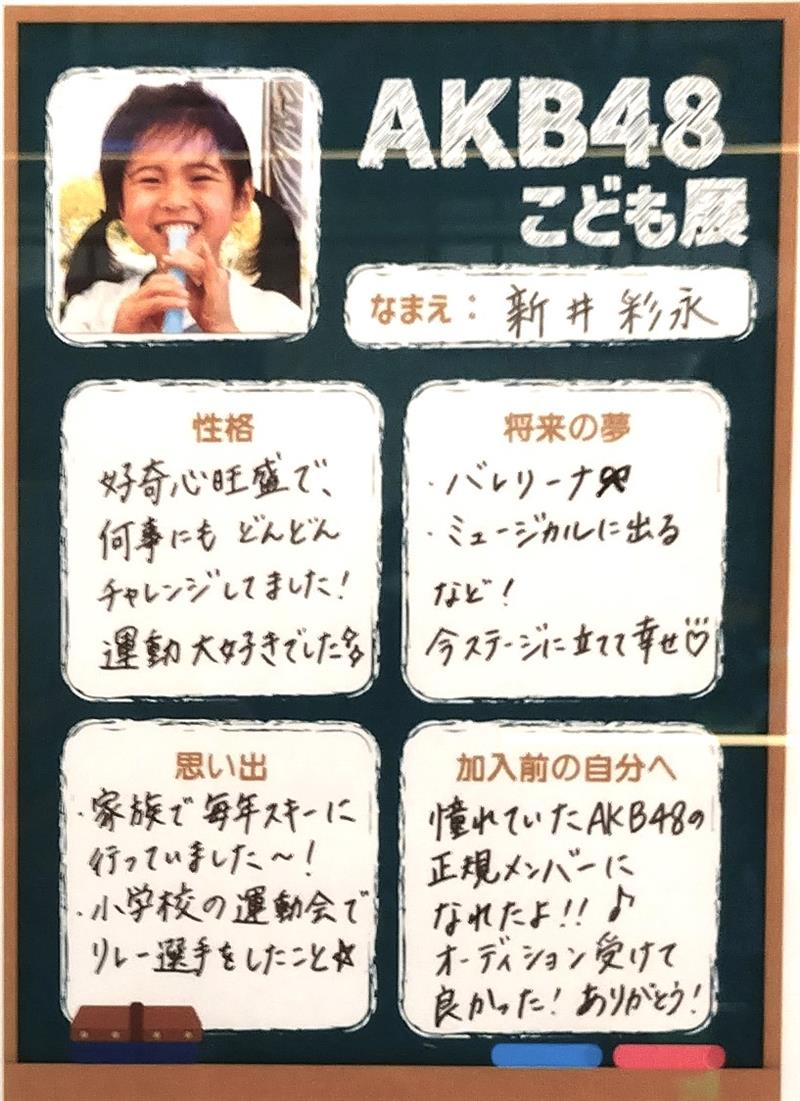 AKB48
こども展
なまえ： 新井彩永
性格
好奇心旺盛で、
何事にも どんどん
チャレンジしてました！
運動大好きでした
将来の夢
・バレリーナ
・ミュージカルに出る
など！
今ステージに立てて幸せ♡
思い出
・家族で毎年スキーに
行っていました〜！
・小学校の運動会で
リレー選手をしたこと☆
加入前の自分へ
憧れていたAKB48の
正規メンバーに
なれたよ！！♪
オーディション受けて
良かった！ありがとう！